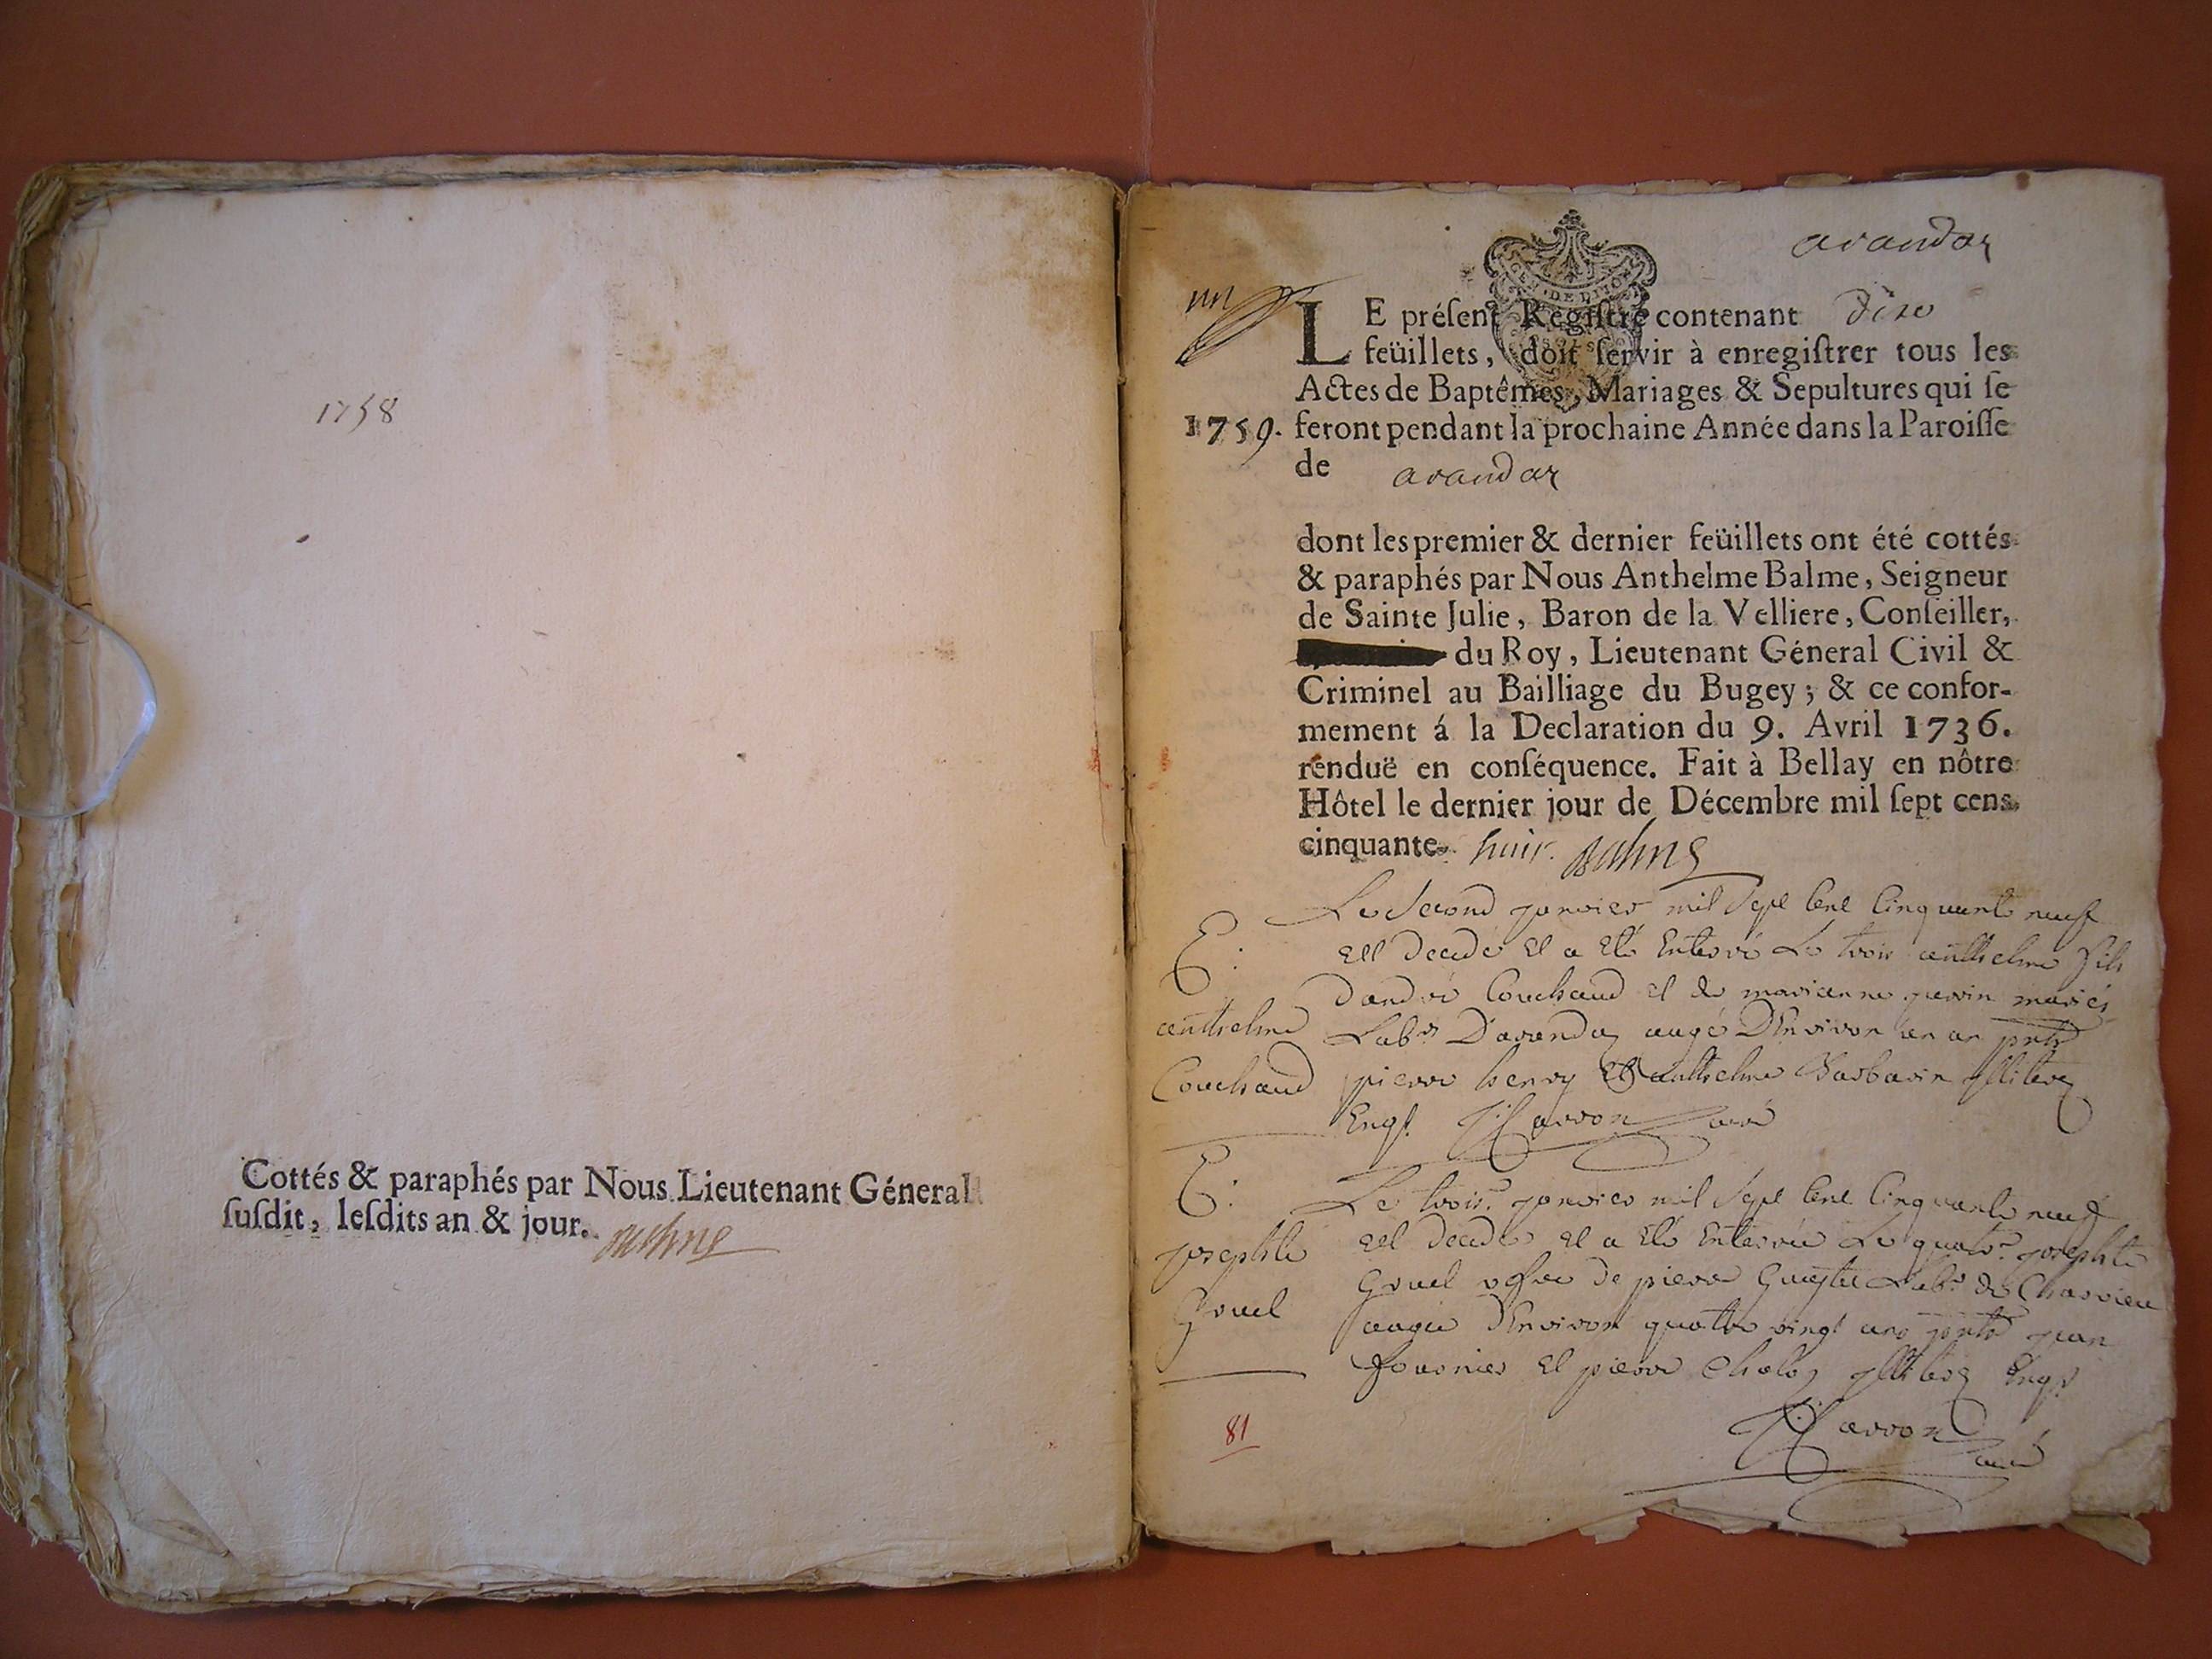 1758
Cottés & paraphés par Nous Lieutenant Géneral
ſuſdit, leſdits an & jour. Balme
arandas
un
GEN. DE DIJON
LE préſent Regiſtre contenant dix
feüillets, doit ſervir à enregiſtrer tous les
Actes de Baptêmes, Mariages & Sepultures qui ſe
1759. feront pendant la prochaine Année dans la Paroiſſe
de arandas
dont les premier & dernier feüillets ont été cottés
& paraphés par Nous Anthelme Balme, Seigneur
de Sainte Julie, Baron de la Velliere, Conſeiller,
du Roy, Lieutenant Géneral Civil &
Criminel au Bailliage du Bugey; & ce confor-
mement á la Declaration du 9. Avril 1736.
renduë en conſéquence. Fait à Bellay en nôtre
Hôtel le dernier jour de Décembre mil ſept cens
cinquante- huit. Balme
Le Second janvier mil Sept Cent Cinquante neuf
E.
est decedé et a eté Enterré Le trois anthelme fils
d'andré Couchaud et de marianne perrin mariés
anthelme
Labrs D'arandas aagé D'Environ un an pnts
Couchaud
pierre henry Et anthelme Barbarin illiterez
Enqs. Carron curé
E.
Le trois janvier mil Sept Cent Cinquante neuf
josephte
est decedée et a eté Enterrée Le quatre josephte
Gruel
Gruel vefve de pierre Labr de Charvieu
aagée D'Environ quatre vingt ans pnts jean
fournier et pierre illiterez Enqs
Carron
curé
81